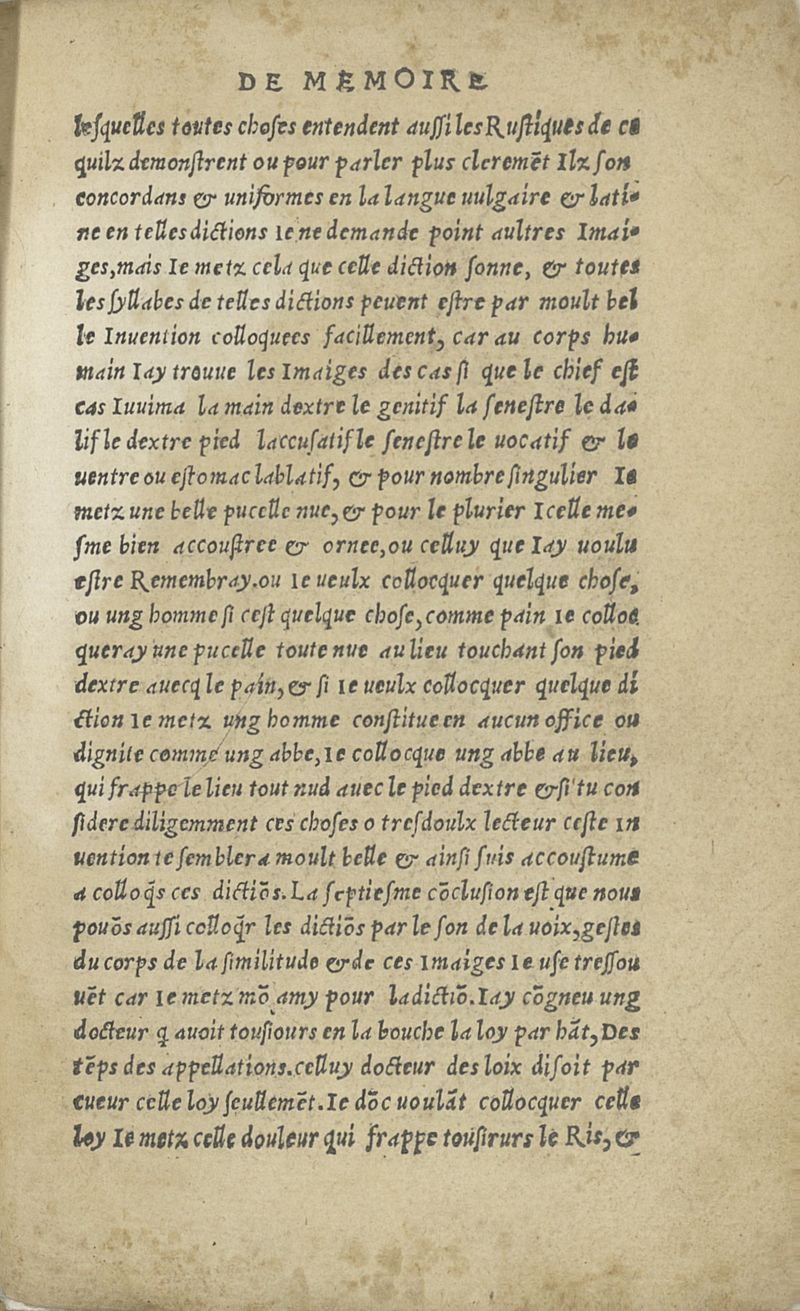 DE MEMOIRE
lesquelles toutes choses entendent aussi les Rustiques de ce
quilz demonstrent ou pour parler plus cleremēt Ilz son
concordans & uniformes en la langue uulgaire & lati-
ne en telles dictions ie ne demande point aultres Imai-
ges, mais Ie metz cela que celle diction sonne, & toutes
les syllabes de telles dictions peuent estre par moult bel
le Inuention colloquees facillement, car au corps hu-
main Iay trouue les Imaiges des cas si que le chief est
cas Iuuima la main dextre le genitif la senestre le da-
lif le dextre pied laccusatif le senestre le uocatif & le
uentre ou estomac lablatif, & pour nombre singulier Ie
metz une belle pucelle nue, & pour le plurier Icelle me-
sme bien accoustree & ornee, ou celluy que Iay uoulu
estre Remembray. ou ie ueulx collocquer quelque chose,
ou ung homme si cest quelque chose, comme pain ie colloc
queray une pucelle toute nue au lieu touchant son pied
dextre auecq le pain, & si ie ueulx collocquer quelque di
ction ie metz ung homme constitue en aucun office ou
dignite comme ung abbe, ie collocque ung abbe au lieu,
qui frappe le lieu tout nud auec le pied dextre & si tu con
sidere diligemment ces choses o tresdoulx lecteur ceste in
uention te semblera moult belle & ainsi suis accoustume
a colloq̄s ces dictiōs. La septiesme cōclusion est que nous
pouōs aussi colloq̄r les dictiōs par le son de la uoix, gestes
du corps de la similitude & de ces imaiges ie use tressou
uēt car ie metz mō amy pour ladictiō. Iay cōgneu ung
docteur q̄ auoit tousiours en la bouche la loy par hāt, Des
tēps des appellations. celluy docteur des loix disoit par
cueur celle loy seullemēt. Ie dōc uoulāt collocquer celle
loy Ie metz celle douleur qui frappe tousirurs le Ris, &